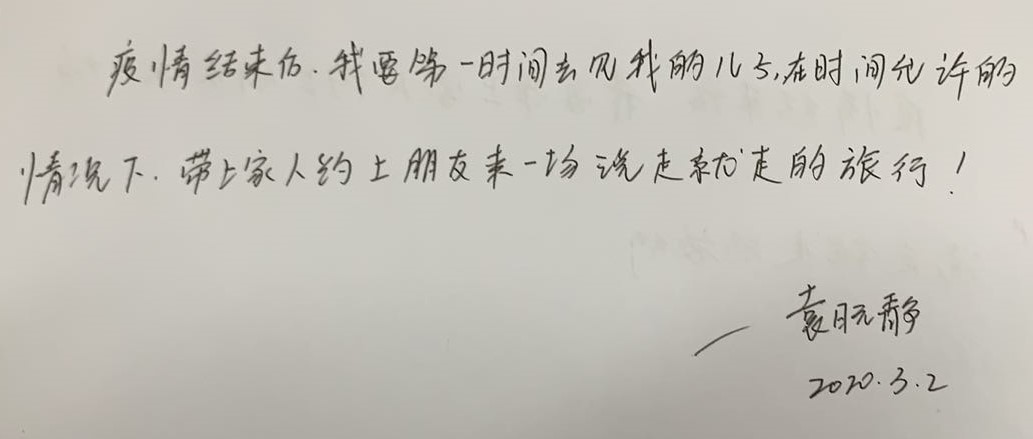 疫情结束后.我要第一时间去见我的儿子,在时间允许的
情况下.带上家人约上朋友来一场说走就走的旅行!
袁静
2020.3.2